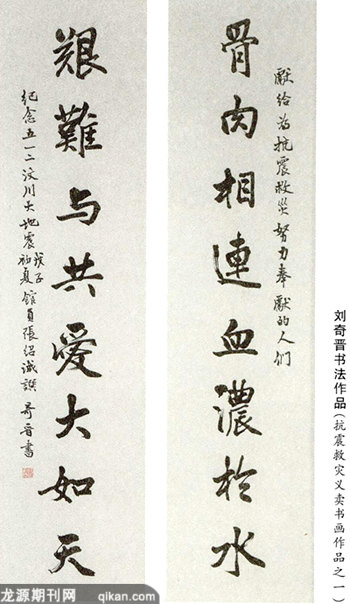 獻给为抗震救災努力奉獻的人们
骨肉相連血濃於水
艱難与共愛大如天
紀念五一二汶川大地震戊子初夏館員張绍诚譔奇晋書
刘奇晋书法作品(抗震救灾义卖书画作品之一)
龙源期刊网 qikan.com